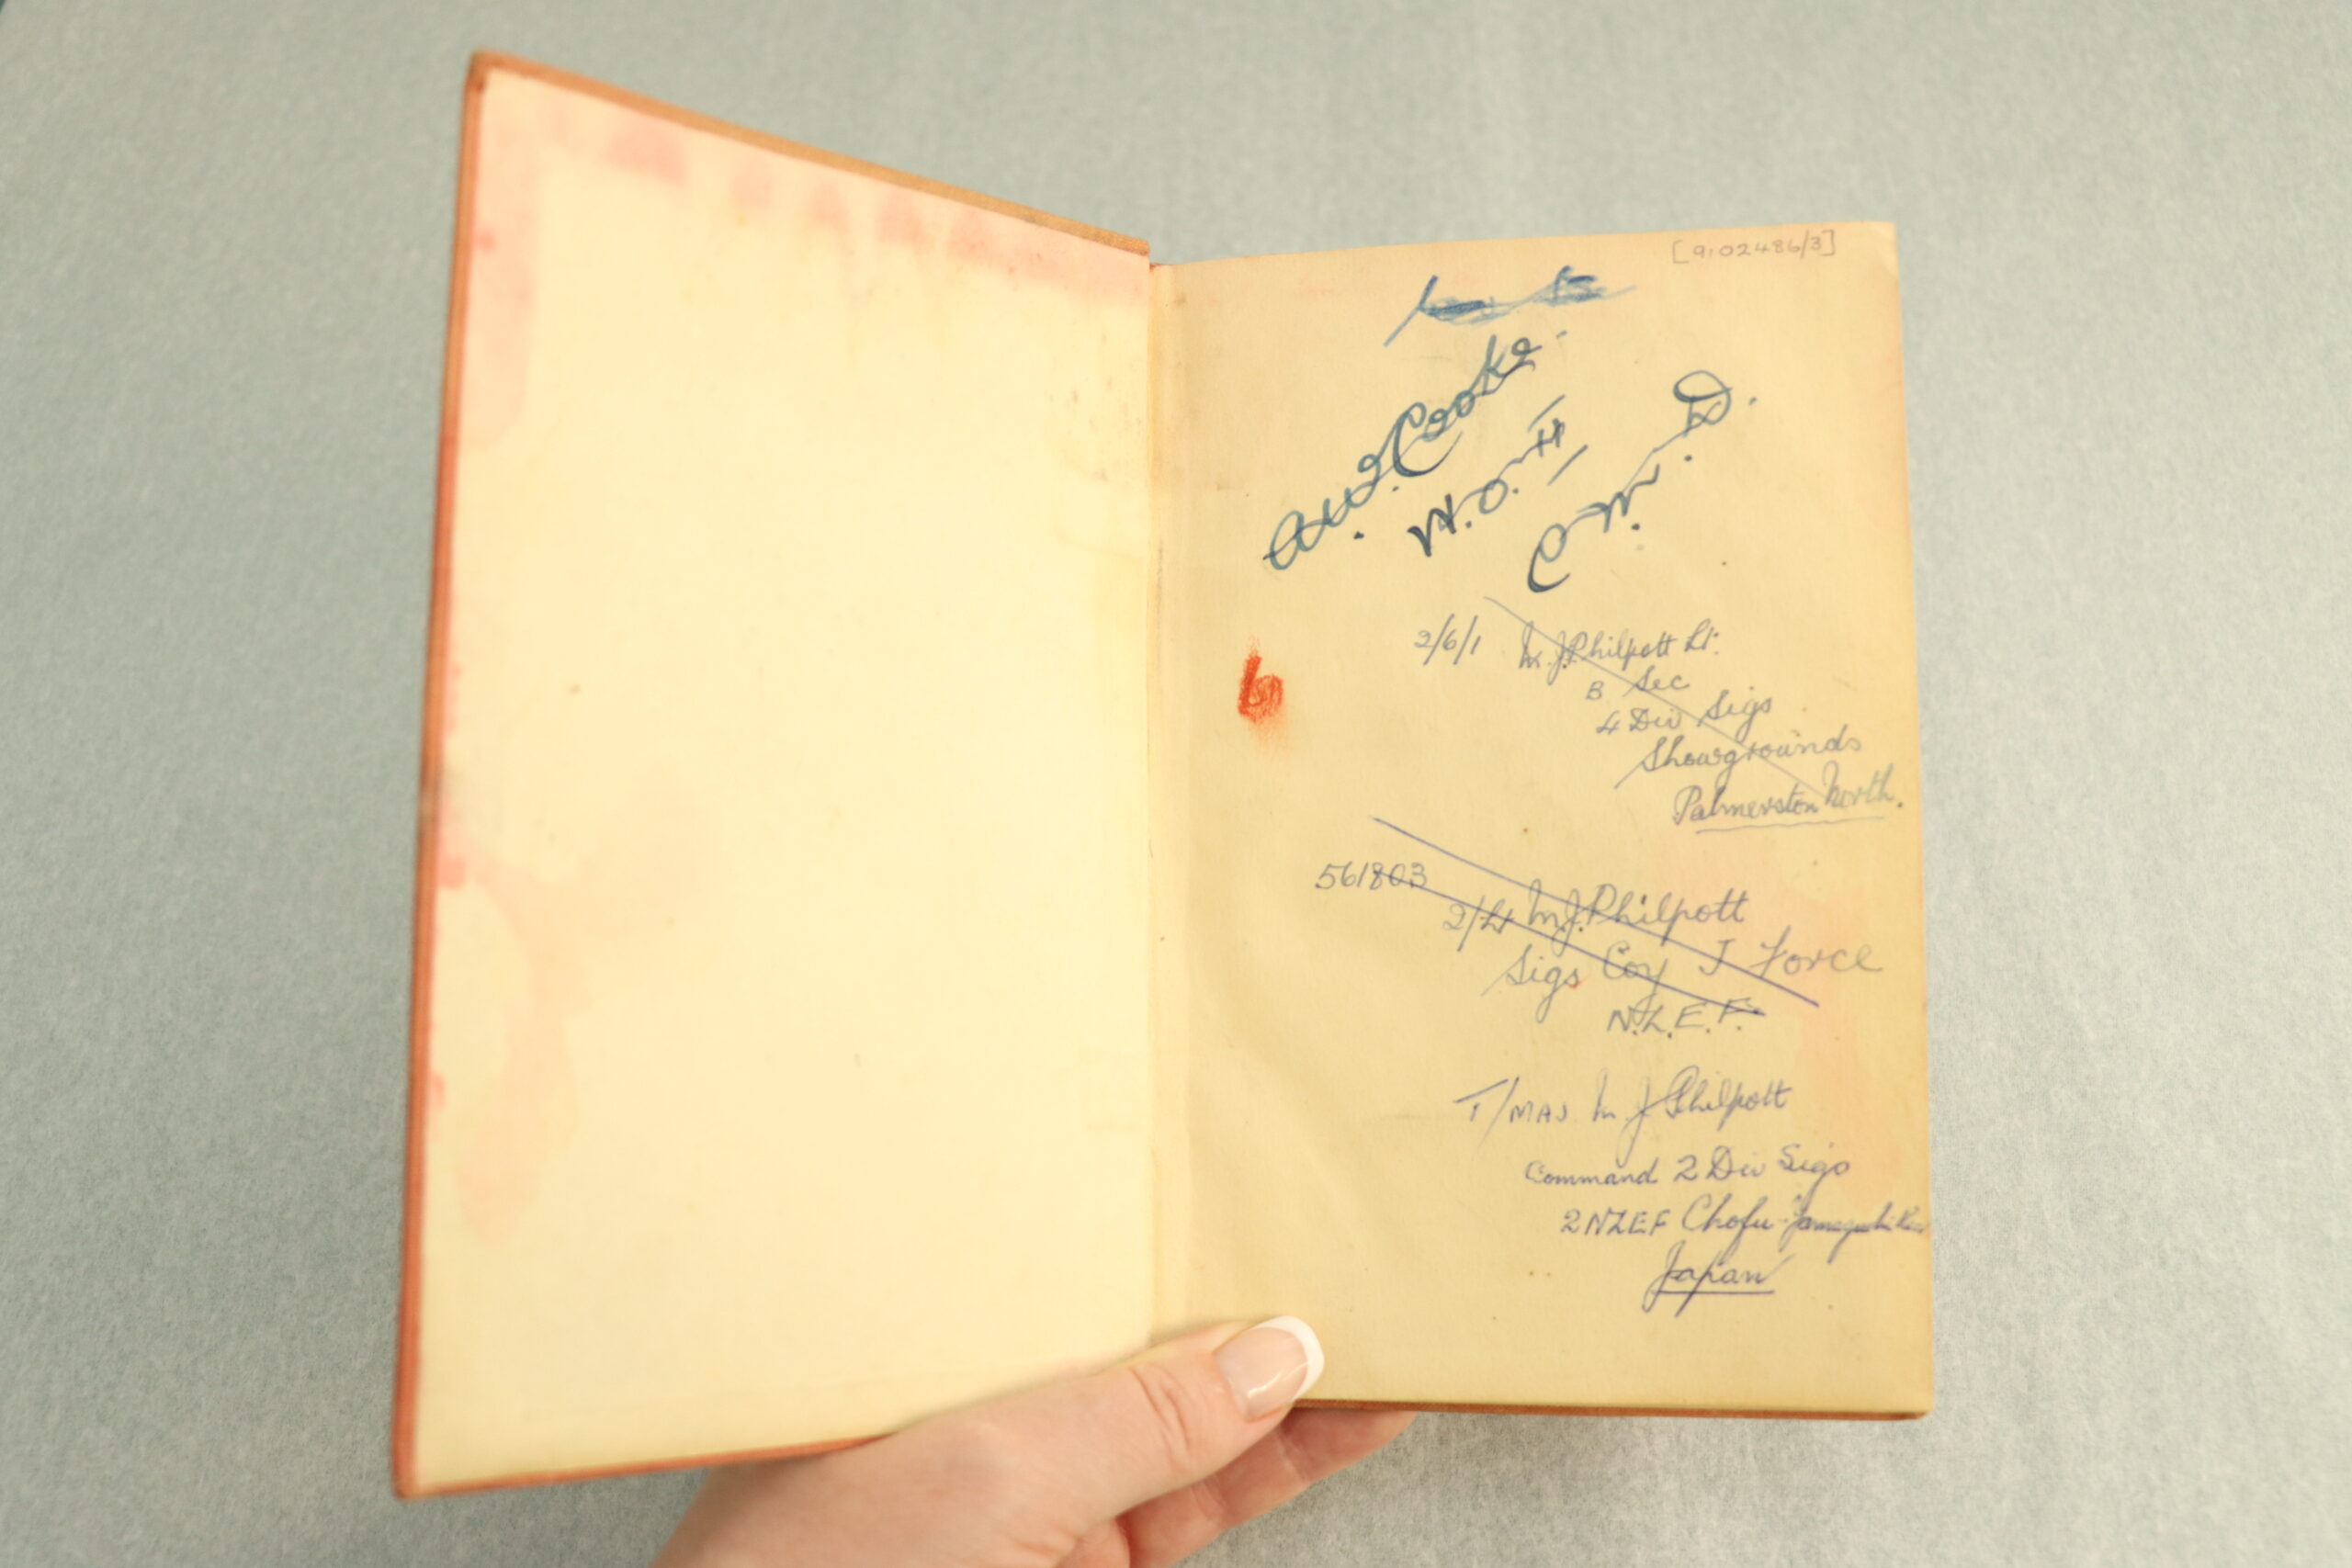 [9:02486/3]
A.W.J. Cooke.
W.O. II
C.M.D.
6
2/6/1 M.J. Philpott Lt.
B Sec
4 Div Sigs
Showgrounds
Palmerston North.
561803
2/Lt M.J. Philpott
Sigs Coy J Force
N.Z.E.F.
T/MAJ. M J Philpott
Command 2 Div Sigs
2NZEF Chofu-
Japan